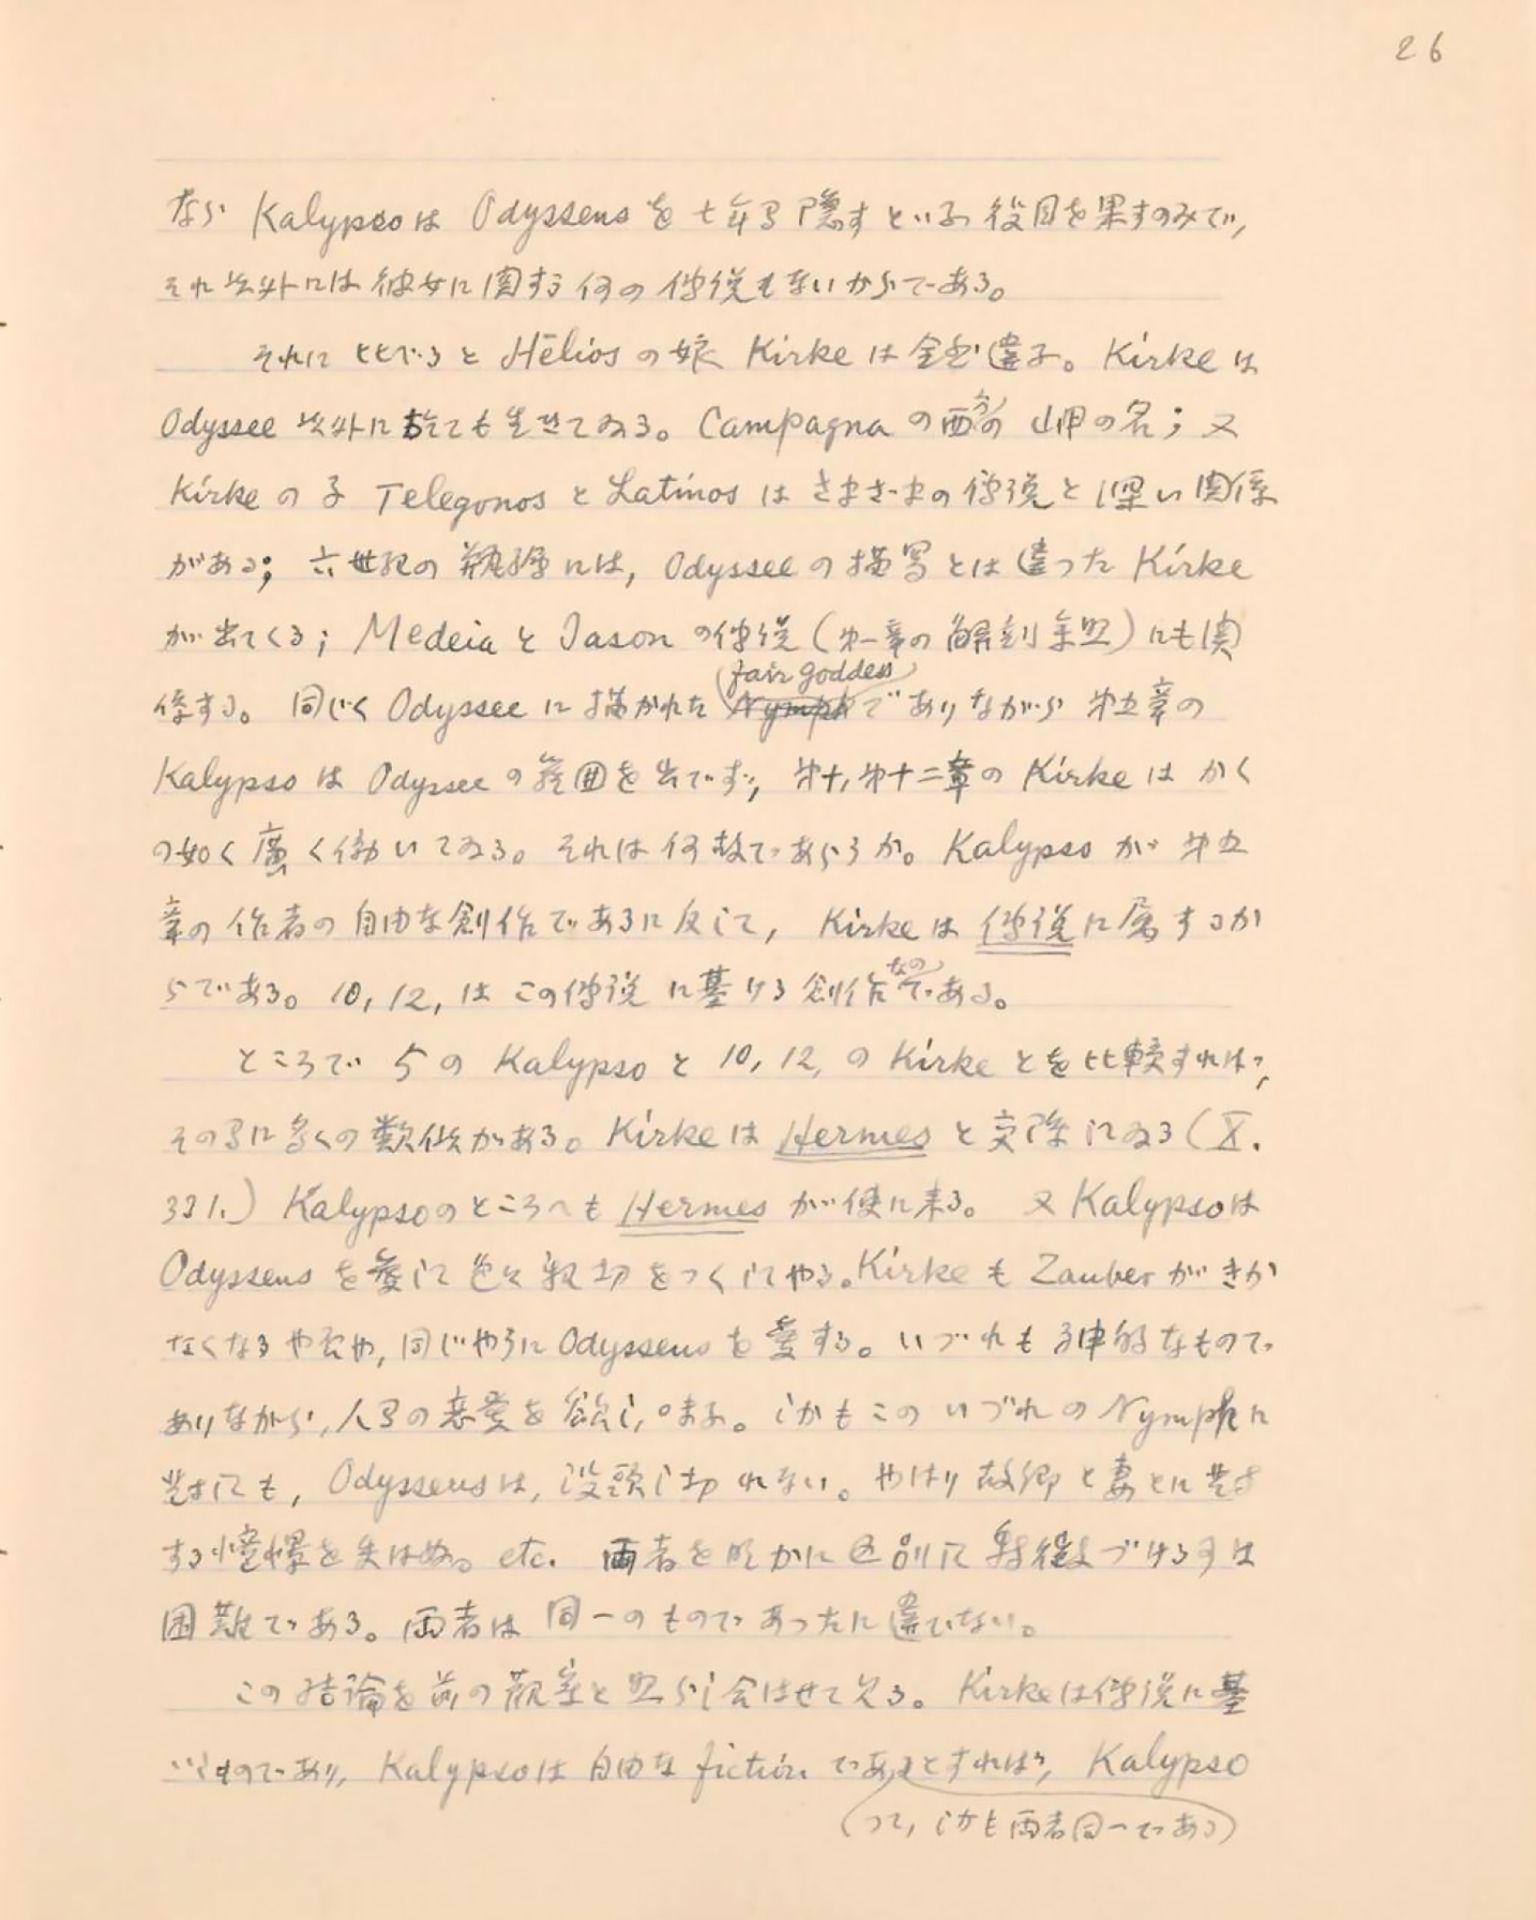 26
なら Kalypsoは Odysseus を 七年間 隠す といふ 役目を果すのみで,
それ以外には 彼女に関する 何の 伝説もないからである。
それに 比べると Hēlios の 娘 Kirke は 全然違ふ。 Kirke は
Odyssee 以外に於ても生きてゐる。 Campagna の 西方の 岬の名; 又
Kirke の 子 Telegonos と Latinos は さまざまの 伝説と 深い 関係
がある; 六世紀の 瓶絵には, Odyssee の 描写とは 違った Kirke
が 出てくる; Medeia と Jason の伝説 (第一章の 解剖参照) にも関
係する。 同じく Odyssee に 描かれた fair goddess でありながら 第五章の
Kalypso は Odyssee の 範囲を 出でず, 第十, 第十二章の Kirke は かく
の如く 広く働いてゐる。 それは 何故であらうか。 Kalypso が 第五
章の 作者の 自由な創作であるに反して, Kirkeは 伝説に属するか
らである。 10, 12, は この伝説 に基ける 創作なのである。
ところで 5 の Kalypso と 10, 12, の Kirke とを 比較すれば,
その間に 多くの 類似がある。 Kirke は Hermes と 交際してゐる (X.
331.) Kalypsoのところへも Hermes が 使に来る。 又 Kalypsoは
Odysseus を 愛して 色々 親切 をつくしてやる。 Kirke も Zauber がきか
なくなるや否や, 同じやうに Odysseus を 愛する。 いづれも 神的なもので
ありながら, 人間の 恋愛を 欲し, 味ふ。 しかもこの いづれの Nymph に
対しても, Odysseusは, 没頭し切れない。 やはり 故郷 と 妻とに 対
する憧憬を失はぬ。 etc. 両者を 明かに 区別して 特徴づける事は
困難である。 両者は 同一のものであったに 違ひない。
この 結論を 前の 観察と 照らし合はせて见る。 Kirkeは伝説に基
いたものであり, Kalypsoは 自由な fiction であるとすれば, Kalypso
(って, しかも両者同一である)